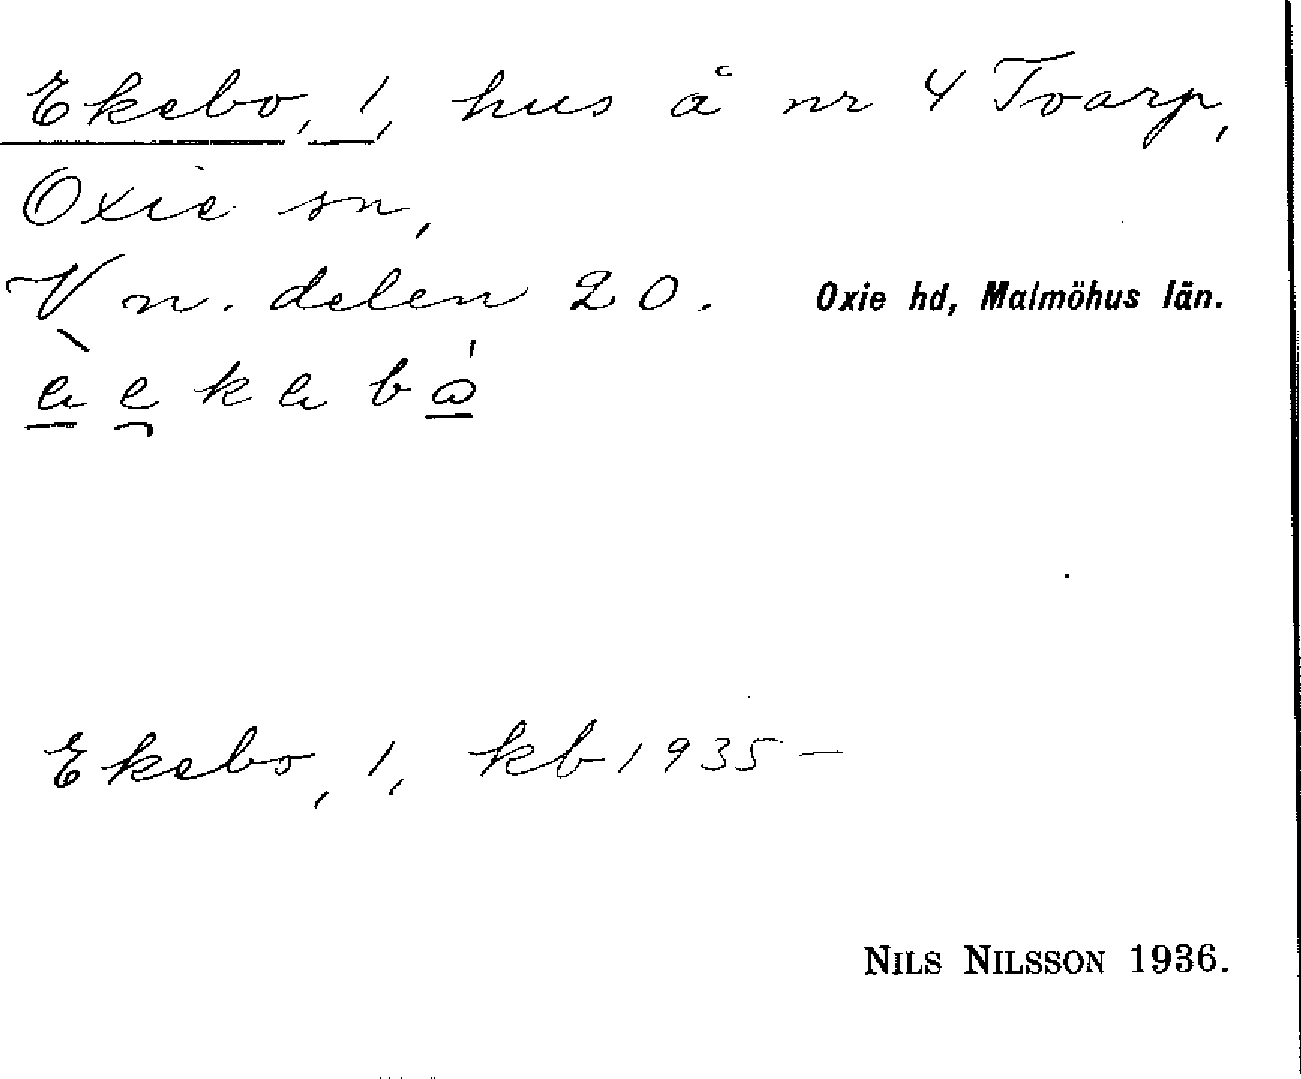 Ekebo, 1, hus å nr 4 Toarp,
Oxie sn,
V n. delen 20. Oxie hd, Malmöhus län.
Ekebo, 1, kb 1935–
NILS NILSSON 1936.